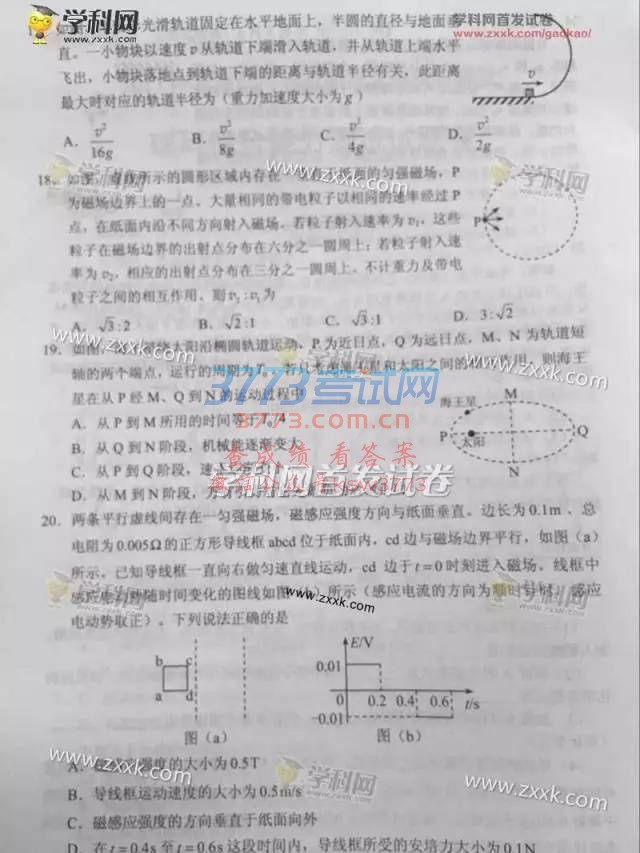 学科网
www.zxxk.com
光滑轨道固定在水平地面上，半圆的直径与地面垂
学科网首发试卷
www.zxxk.com/gaokao/
直。一小物块以速度 v 从轨道下端滑入轨道，并从轨道上端水平
飞出，小物块落地点到轨道下端的距离与轨道半径有关，此距离
最大时对应的轨道半径为（重力加速度大小为 g）
v
A. v²/16g B. v²/8g C. v²/4g D. v²/2g
学科网
www.zxxk.com
学科网
18. 如图，虚线所示的圆形区域内存在一 的匀强磁场，P
为磁场边界上的一点。大量相同的带电粒子以相同的速率经过 P
点，在纸面内沿不同方向射入磁场。若粒子射入速率为 v₁，这些
粒子在磁场边界的出射点分布在六分之一圆周上；若粒子射入速
率为 v₂，相应的出射点分布在三分之一圆周上。不计重力及带电
粒子之间的相互作用。则 v₂ : v₁ 为
P
A. √3 : 2 B. √2 : 1 C. √3 : 1 D. 3 : √2
www.zxxk.com
学科网
www.zxxk.com
19. 如图， 绕太阳沿椭圆轨道运动，P 为近日点，Q 为远日点，M、N 为轨道短
轴的两个端点，运行的周期为 T₀ 和太阳之间的 则海王
星在从 P 经 M、Q 到 N 的运动过程中
3773考试网
3773.com.cn
查成绩 看答案
A. 从 P 到 M 所用的时间等于 T₀/4
B. 从 Q 到 N 阶段，机械能逐渐变大
C. 从 P 到 Q 阶段，速
D. 从 M 到 N 阶段，万
海王星
M
P
太阳
Q
N
学科网首发试卷
20. 两条平行虚线间存在一匀强磁场，磁感应强度方向与纸面垂直。边长为 0.1m 、总
电阻为 0.005Ω 的正方形导线框 abcd 位于纸面内，cd 边与磁场边界平行，如图（a）
所示，已知导线框一直向右做匀速直线运动，cd 边于 t = 0 时刻进入磁场。线框中
感应电动势随时间变化的图线如图（b）所示（感应电流的方向为顺时针时，感应
电动势取正）。下列说法正确的是
学科网
www.zxxk.com
学科网
b c
a d
图（a）
E/V
0.01
0 0.2 0.4 0.6 t/s
−0.01
图（b）
www.zxxk.com
学科网
www.zxxk.com
A. 强度的大小为 0.5T
B. 导线框运动速度的大小为 0.5m/s
C. 磁感应强度的方向垂直于纸面向外
D. 在 t = 0.4s 至 t = 0.6s 这段时间内，导线框所受的安培力大小为 0.1N
学科网
www.zxxk.com
学科网